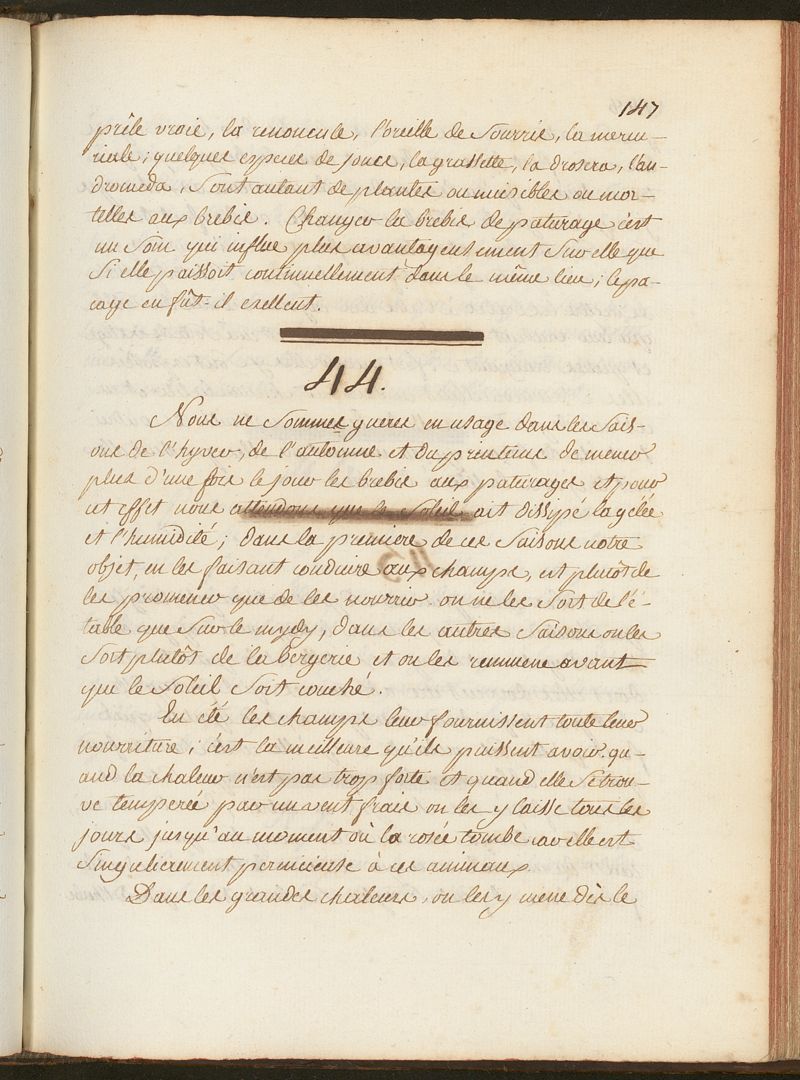 147
prêle vraie, la renoncule, l'oreille de Sourris, la mercu-
rielle; quelques especes de joncs, la grassette, la drosera, l'an-
dromeda, Sont autant de plantes ou nuisibles ou mor-
telles aux brebis. Changer la brebis de paturage c'est
un Soin qui influe plus avantageusement Sur elle que
Si elle paissoit continuellement dans le même lieu; le pa-
cage en fût-il exellent.
44.
Nous ne Sommes gueres en usage dans les Sais-
ons de l'hyver, de l'automne et du printems de mener
plus d'une fois le jour les brebis aux paturages et pour
cet effet nous attendons que le Soleil ait dissipé la gelée
et l'humidité; dans la premiere de ces Saisons notre
objet, en les faisant conduire aux champs, est plutôt de
les promener que de les nourrir. on ne les Sort de l'é-
table que Sur le mydy, dans les autres Saisons on les
Sort plutôt de la bergerie et on les remmene avant
que le Soleil Soit couché.
En été les champs leur fournissent toute leur
nourriture; c'est la meilleure qu'ils puissent avoir. qu-
and la chaleur n'est pas trop forte et quand elle Se trou-
ve temperée par un vent frais on les y laisse tous les
jours jusqu'au moment où la rosée tombe car elle est
Singulierement pernicieuse à ces animaux.
Dans les grandes chaleurs, on les y mene dès le